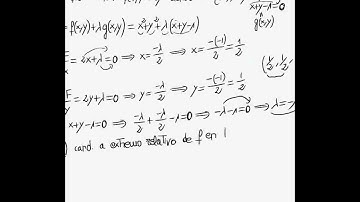 x+y-1=0
g(x,y)
= f(x,y)+λg(x,y) = x²+y²+λ(x+y-1)
= 2x+λ=0 ⟹ x=-λ/2 ⟹ x=-(-1)/2=1/2
(1/2, 1/2,
= 2y+λ=0 ⟹ y=-λ/2 ⟹ y=-(-1)/2=1/2
x+y-1=0 ⟹ -λ/2+-λ/2-1=0 ⟹ -λ-1=0 ⟹ λ=-
) cand. a extremo relativo de f en 1